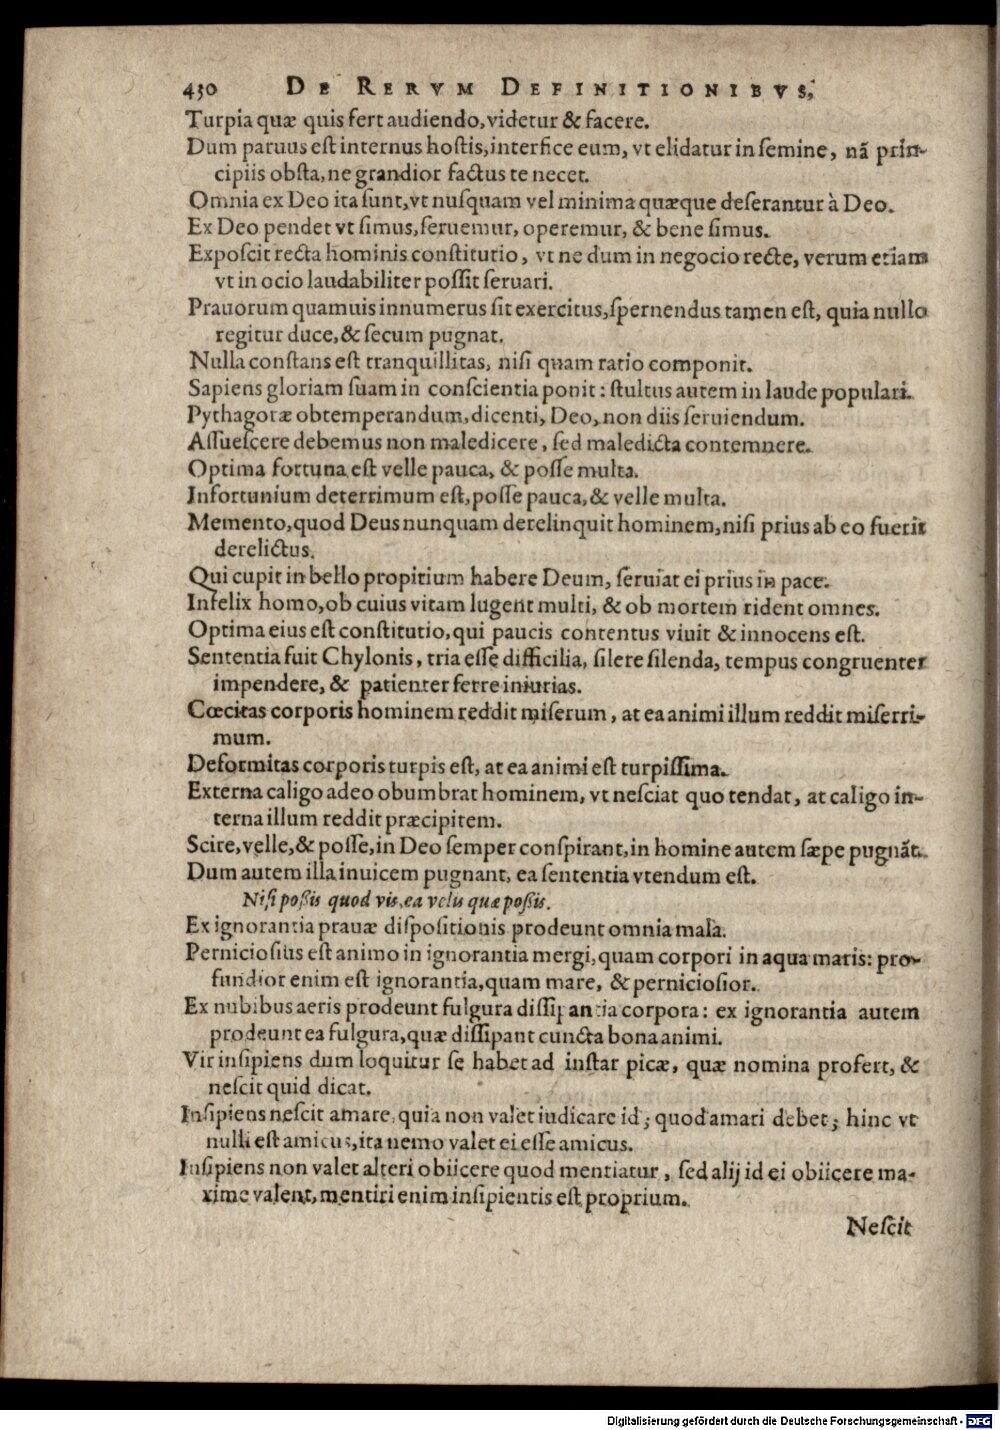 430 DE RERVM DEFINITIONIBVS,
Turpia quæ quis fert audiendo, videtur & facere.
Dum paruus est internus hostis, interfice eum, vt elidatur in semine, nã prin-
cipiis obsta, ne grandior factus te necet.
Omnia ex Deo ita sunt, vt nusquam vel minima quæque deserantur à Deo.
Ex Deo pendet vt simus, seruemur, operemur, & bene simus.
Exposcit recta hominis constitutio, vt ne dum in negocio recte, verum etiam
vt in ocio laudabiliter possit seruari.
Prauorum quamuis innumerus sit exercitus, spernendus tamen est, quia nullo
regitur duce, & secum pugnat.
Nulla constans est tranquillitas, nisi quam ratio componit.
Sapiens gloriam suam in conscientia ponit: stultus autem in laude populari.
Pythagoræ obtemperandum, dicenti, Deo, non diis seruiendum.
Assuescere debemus non maledicere, sed maledicta contemnere.
Optima fortuna est velle pauca, & posse multa.
Infortunium deterrimum est, posse pauca, & velle multa.
Memento, quod Deus nunquam derelinquit hominem, nisi prius ab eo fuerit
derelictus.
Qui cupit in bello propitium habere Deum, seruiat ei prius in pace.
Infelix homo, ob cuius vitam lugent multi, & ob mortem rident omnes.
Optima eius est constitutio, qui paucis contentus viuit & innocens est.
Sententia fuit Chylonis, tria esse difficilia, silere silenda, tempus congruenter
impendere, & patienter ferre iniurias.
Cœcitas corporis hominem reddit miserum, at ea animi illum reddit miserri-
mum.
Deformitas corporis turpis est, at ea animi est turpissima.
Externa caligo adeo obumbrat hominem, vt nesciat quo tendat, at caligo in-
terna illum reddit præcipitem.
Scire, velle, & posse, in Deo semper conspirant, in homine autem sæpe pugnãt.
Dum autem illa inuicem pugnant, ea sententia vtendum est.
Nisi possis quod vis, ea velis quæ possis.
Ex ignorantia prauæ dispositionis prodeunt omnia mala.
Perniciosius est animo in ignorantia mergi, quam corpori in aqua maris: pro-
fundior enim est ignorantia, quam mare, & perniciosior.
Ex nubibus aeris prodeunt fulgura dissipantia corpora: ex ignorantia autem
prodeunt ea fulgura, quæ dissipant cuncta bona animi.
Vir insipiens dum loquitur se habet ad instar picæ, quæ nomina profert, &
nescit quid dicat.
Insipiens nescit amare, quia non valet iudicare id; quod amari debet; hinc vt
nulli est amicus, ita nemo valet ei esse amicus.
Insipiens non valet alteri obiicere quod mentiatur, sed alij id ei obiicere ma-
xime valent, mentiri enim insipientis est proprium.
Nescit
Digitalisierung gefördert durch die Deutsche Forschungsgemeinschaft - DFG